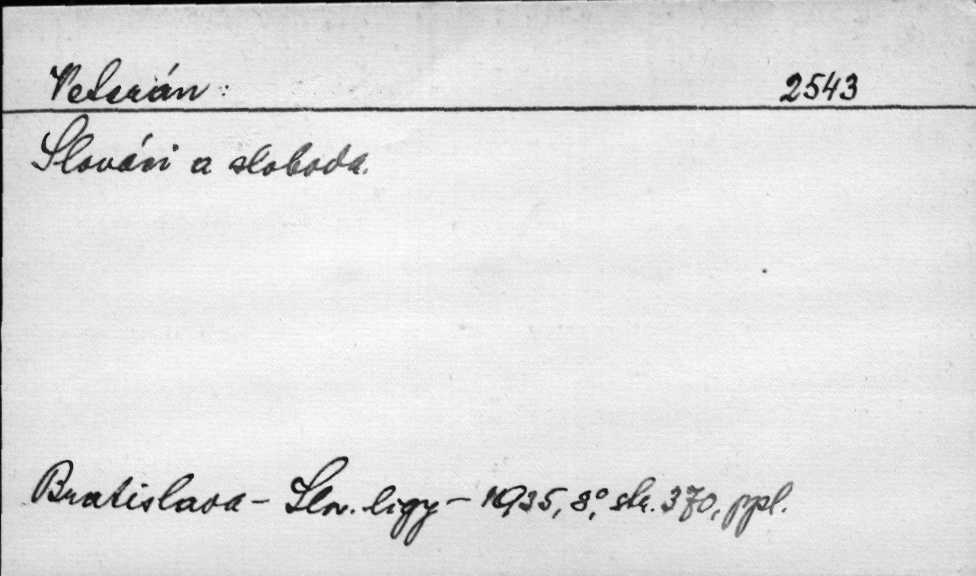 Veterán: 2543
Slováci a sloboda.
Bratislava - Slov. ligy - 1935, 8°, str. 370, ppl.